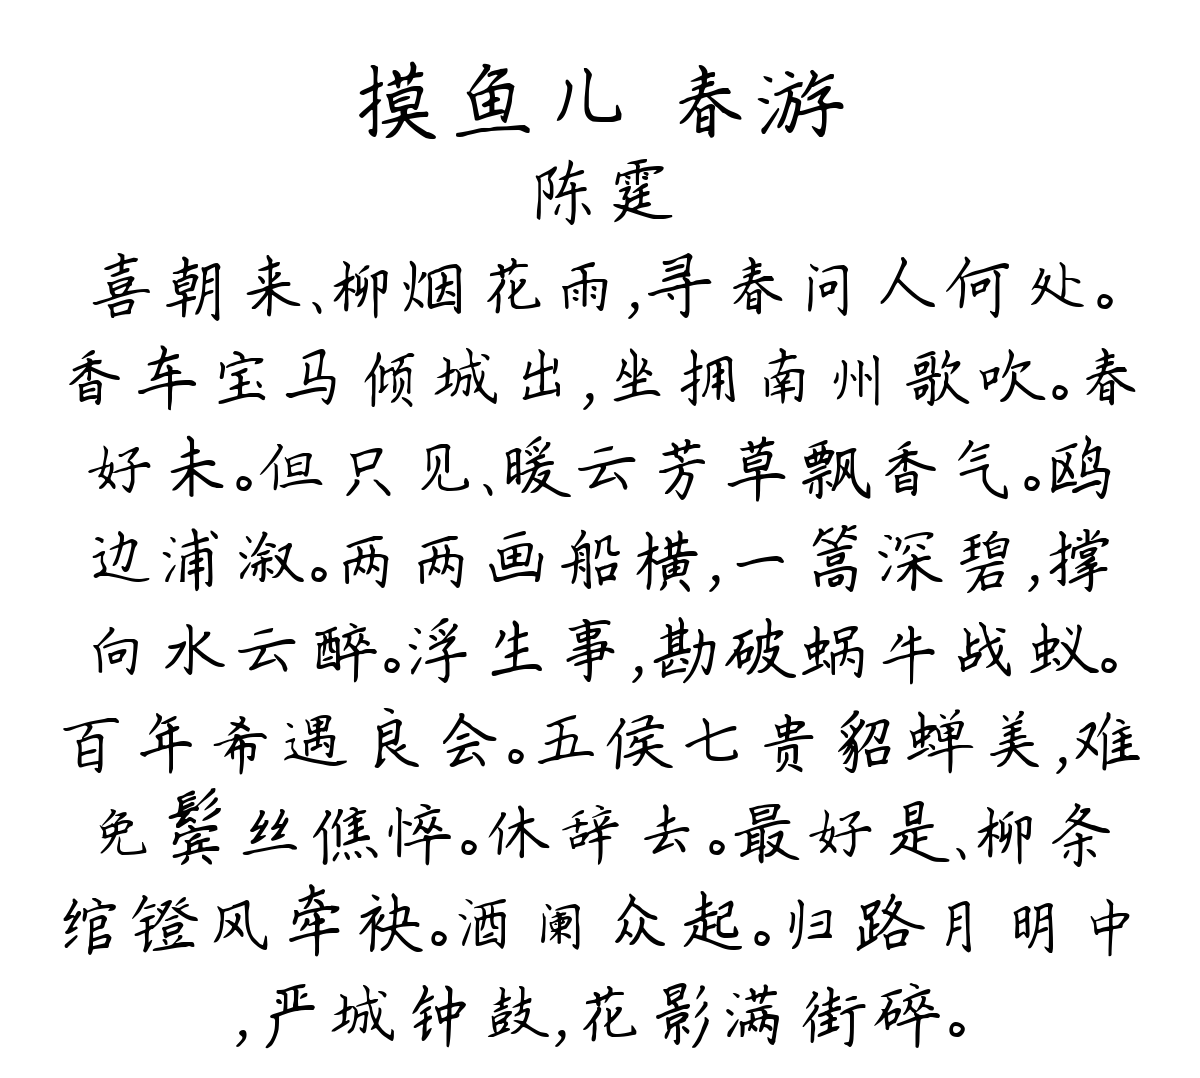 摸鱼儿 春游
陈霆
喜朝来、柳烟花雨,寻春问人何处。
香车宝马倾城出,坐拥南州歌吹。春
好未。但只见、暖云芳草飘香气。鸥
边浦溆。两两画船横,一篙深碧,撑
向水云醉。浮生事,勘破蜗牛战蚁。
百年希遇良会。五侯七贵貂蝉美,难
免鬓丝僬悴。休辞去。最好是、柳条
绾镫风牵袂。酒阑众起。归路月明中
,严城钟鼓,花影满街碎。